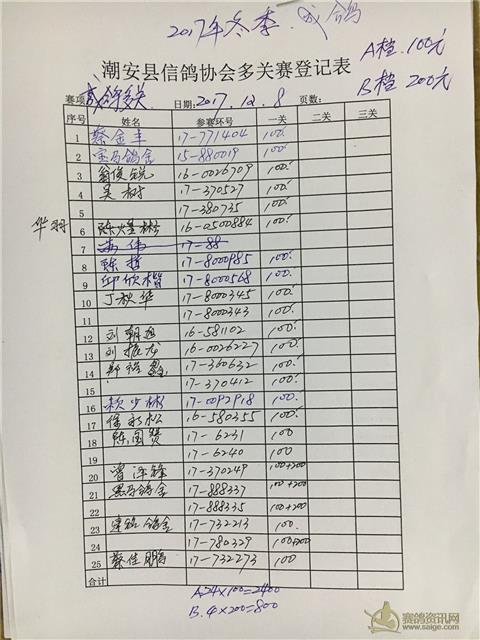 2017年冬季 成鸽
A档.100元
B档 200元
潮安县信鸽协会多关赛登记表
赛项 成鸽多关 日期:2017.12.8 页数:
序号 姓名 参赛环号 一关 二关 三关
1 蔡金丰 17-771404 100.
2 宝马鸽舍 15-880019 100.
3 翁俊锐 16-0026709 100.
4 吴树 17-370527 100.
5 17-380735 100.
华羽 6 陈火生彬 16-0500884 100.
7 伟 17-88
8 陈哲 17-8000985 100.
9 邱欣楷 17-8000568 100.
10 丁秋华 17-8000345 100.
11 17-8000343 100.
12 刘朝 16-581102 100.
13 刘振龙 16-0026227 100.
14 17-360632 100.
15 17-370412 100.
16 赖少彬 17-0092918 100.
17 徐 松 16-580355 100.
18 陈国贤 17-6231 100
19 17-6240 100
20 曾泽锋 17-370249 100+200
21 黑马鸽舍 17-888337 100+200
22 17-888335 100+200
23 鸽舍 17-732213 100.
24 17-780329 100+200
25 蔡佳鹏 17-732273 100
合计
A24×100=2400
B.4×200=800
赛鸽资讯网
www.saige.com